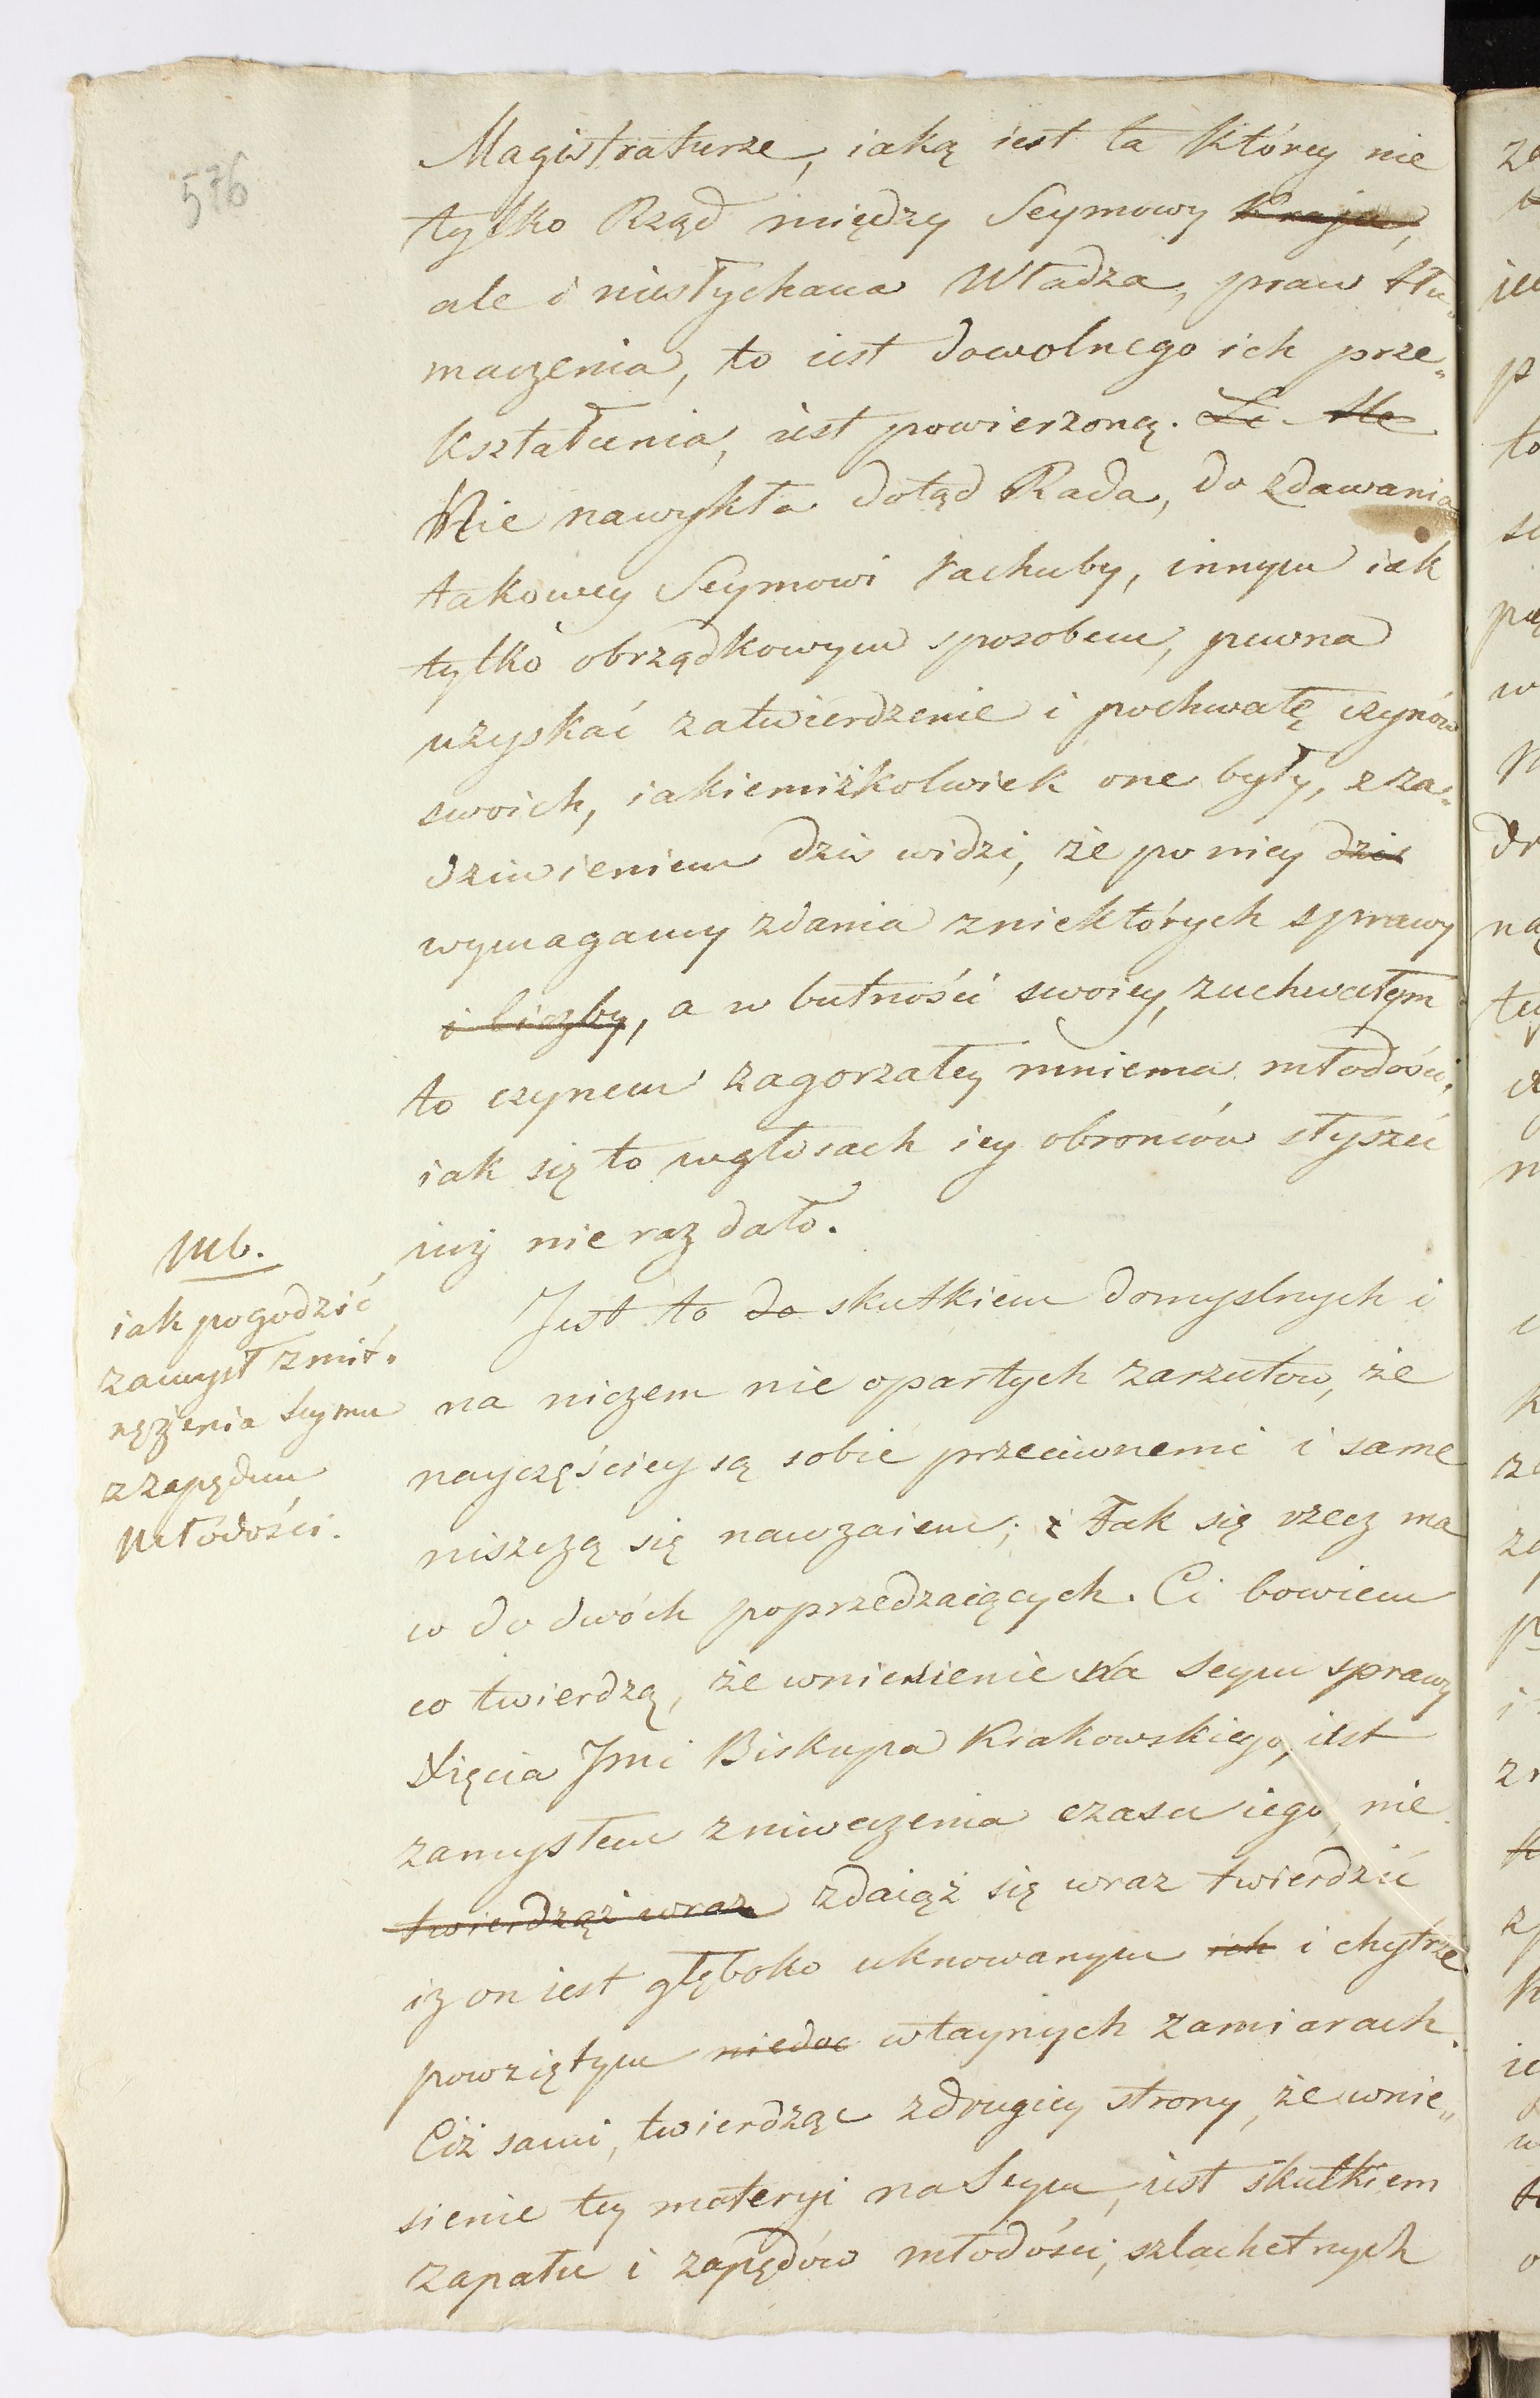 576
Magistraturze, iaką iest ta którey nie
tylko Rząd między Seymowy Kraju,
ale i niesłychana Władza, praw tłu„
maczenia, to iest dowolnego ich prze„
kształcenia, iest powierzoną. Le Ale
Nie nawykła dotąd Rada, do zdawania
takowey Seymowi rachuby, innym iak
tylko obrządkowym sposobem, pewna
uzyskać zatwierdzenie i pochwałę czynów
swoich, iakiemiżkolwiek one były, z za„
dziwieniem dziś widzi, że po niey dziś
wymagamy zdania zniektórych sprawy
i liczby, a w butności swoiey, zuchwałym
to czynem zagorzałey mniema młodości,
iak się to wgłosach iey obrońców słyszeć
iuż nie raz dało.
Nb.
iak pogodzić
zamysł zmit„
nężenia Seymu
z zapędem
Młodości.
Jest to do skutkiem domyslnych i
na niczem nie opartych zarzutow, że
nayczęściey są sobie przeciwnemi i same
niszczą się nawzaiem; i Tak się rzecz ma
co do dwóch poprzedzaiących. Ci bowiem
co twierdzą, że wniesienie na Seym sprawy
Xięcia Jmci Biskupa Krakowskiego, iest
zamysłem zniweczenia czasu iego, nie
twierdząż wraz zdaiąż się wraz twierdzić
iż on iest głęboko uknowanym ich i chytrze
powziętym niedoc wtaynych zamiarach.
Ciż sami, twierdząc zdrugiey strony, że wnie„
sienie tey materyi na Seym, iest skutkiem
zapału i zapędów młodości, szlachetnych